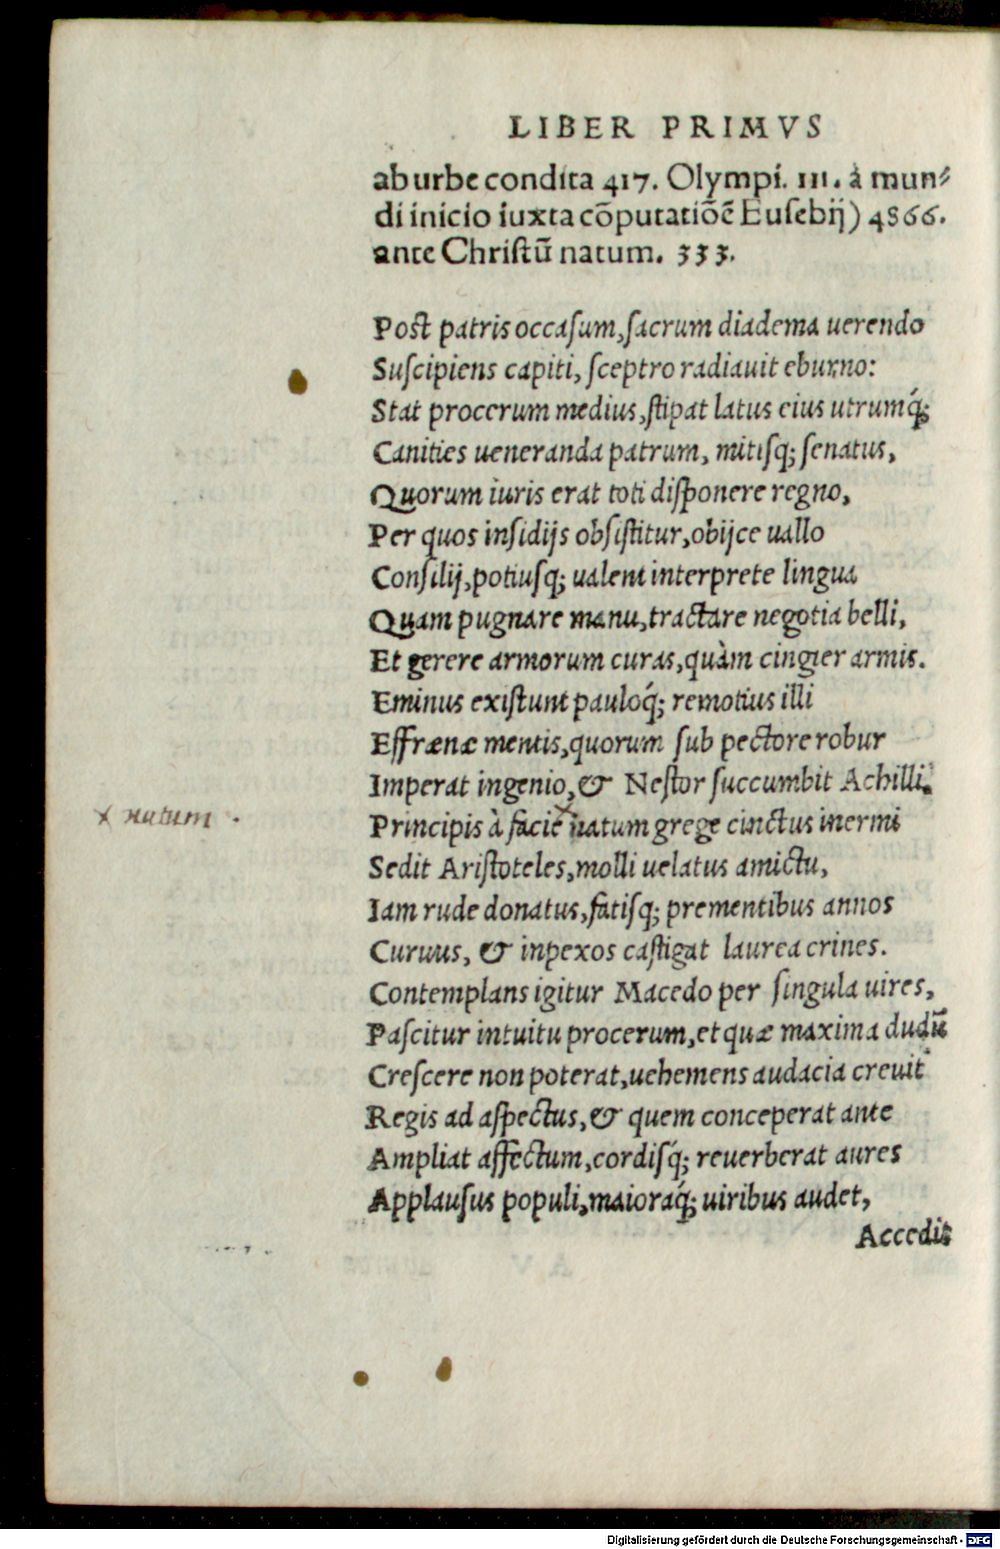 LIBER PRIMVS
ab urbe condita 417. Olympi. 111. à mun⸗
di inicio iuxta cõputatiõẽ Euſebij) 4866.
ante Chriſtũ natum. 333.
Poſt patris occaſum, ſacrum diadema uerendo
Suſcipiens capiti, ſceptro radiauit eburno:
Stat procerum medius, ſtipat latus eius utrumq́;
Canities ueneranda patrum, mitiſq; ſenatus,
Quorum iuris erat toti diſponere regno,
Per quos inſidijs obſiſtitur, obijce uallo
Conſilij, potiuſq; ualent interprete lingua
Quam pugnare manu, tractare negotia belli,
Et gerere armorum curas, quàm cingier armis.
Eminus exiſtunt pauloq́; remotius illi
Effrænæ mentis, quorum ſub pectore robur
Imperat ingenio, & Neſtor ſuccumbit Achilli.
x natum .
Principis à facie natum grege cinctus inermi
Sedit Ariſtoteles, molli uelatus amictu,
Iam rude donatus, fatiſq; prementibus annos
Curuus, & inpexos caſtigat laurea crines.
Contemplans igitur Macedo per ſingula uires,
Paſcitur intuitu procerum, et quæ maxima dudũ
Creſcere non poterat, uehemens audacia creuit
Regis ad aſpectus, & quem conceperat ante
Ampliat affectum, cordiſq́; reuerberat aures
Applauſus populi, maioraq́; uiribus audet,
Accedit
Digitalisierung gefördert durch die Deutsche Forschungsgemeinschaft - DFG